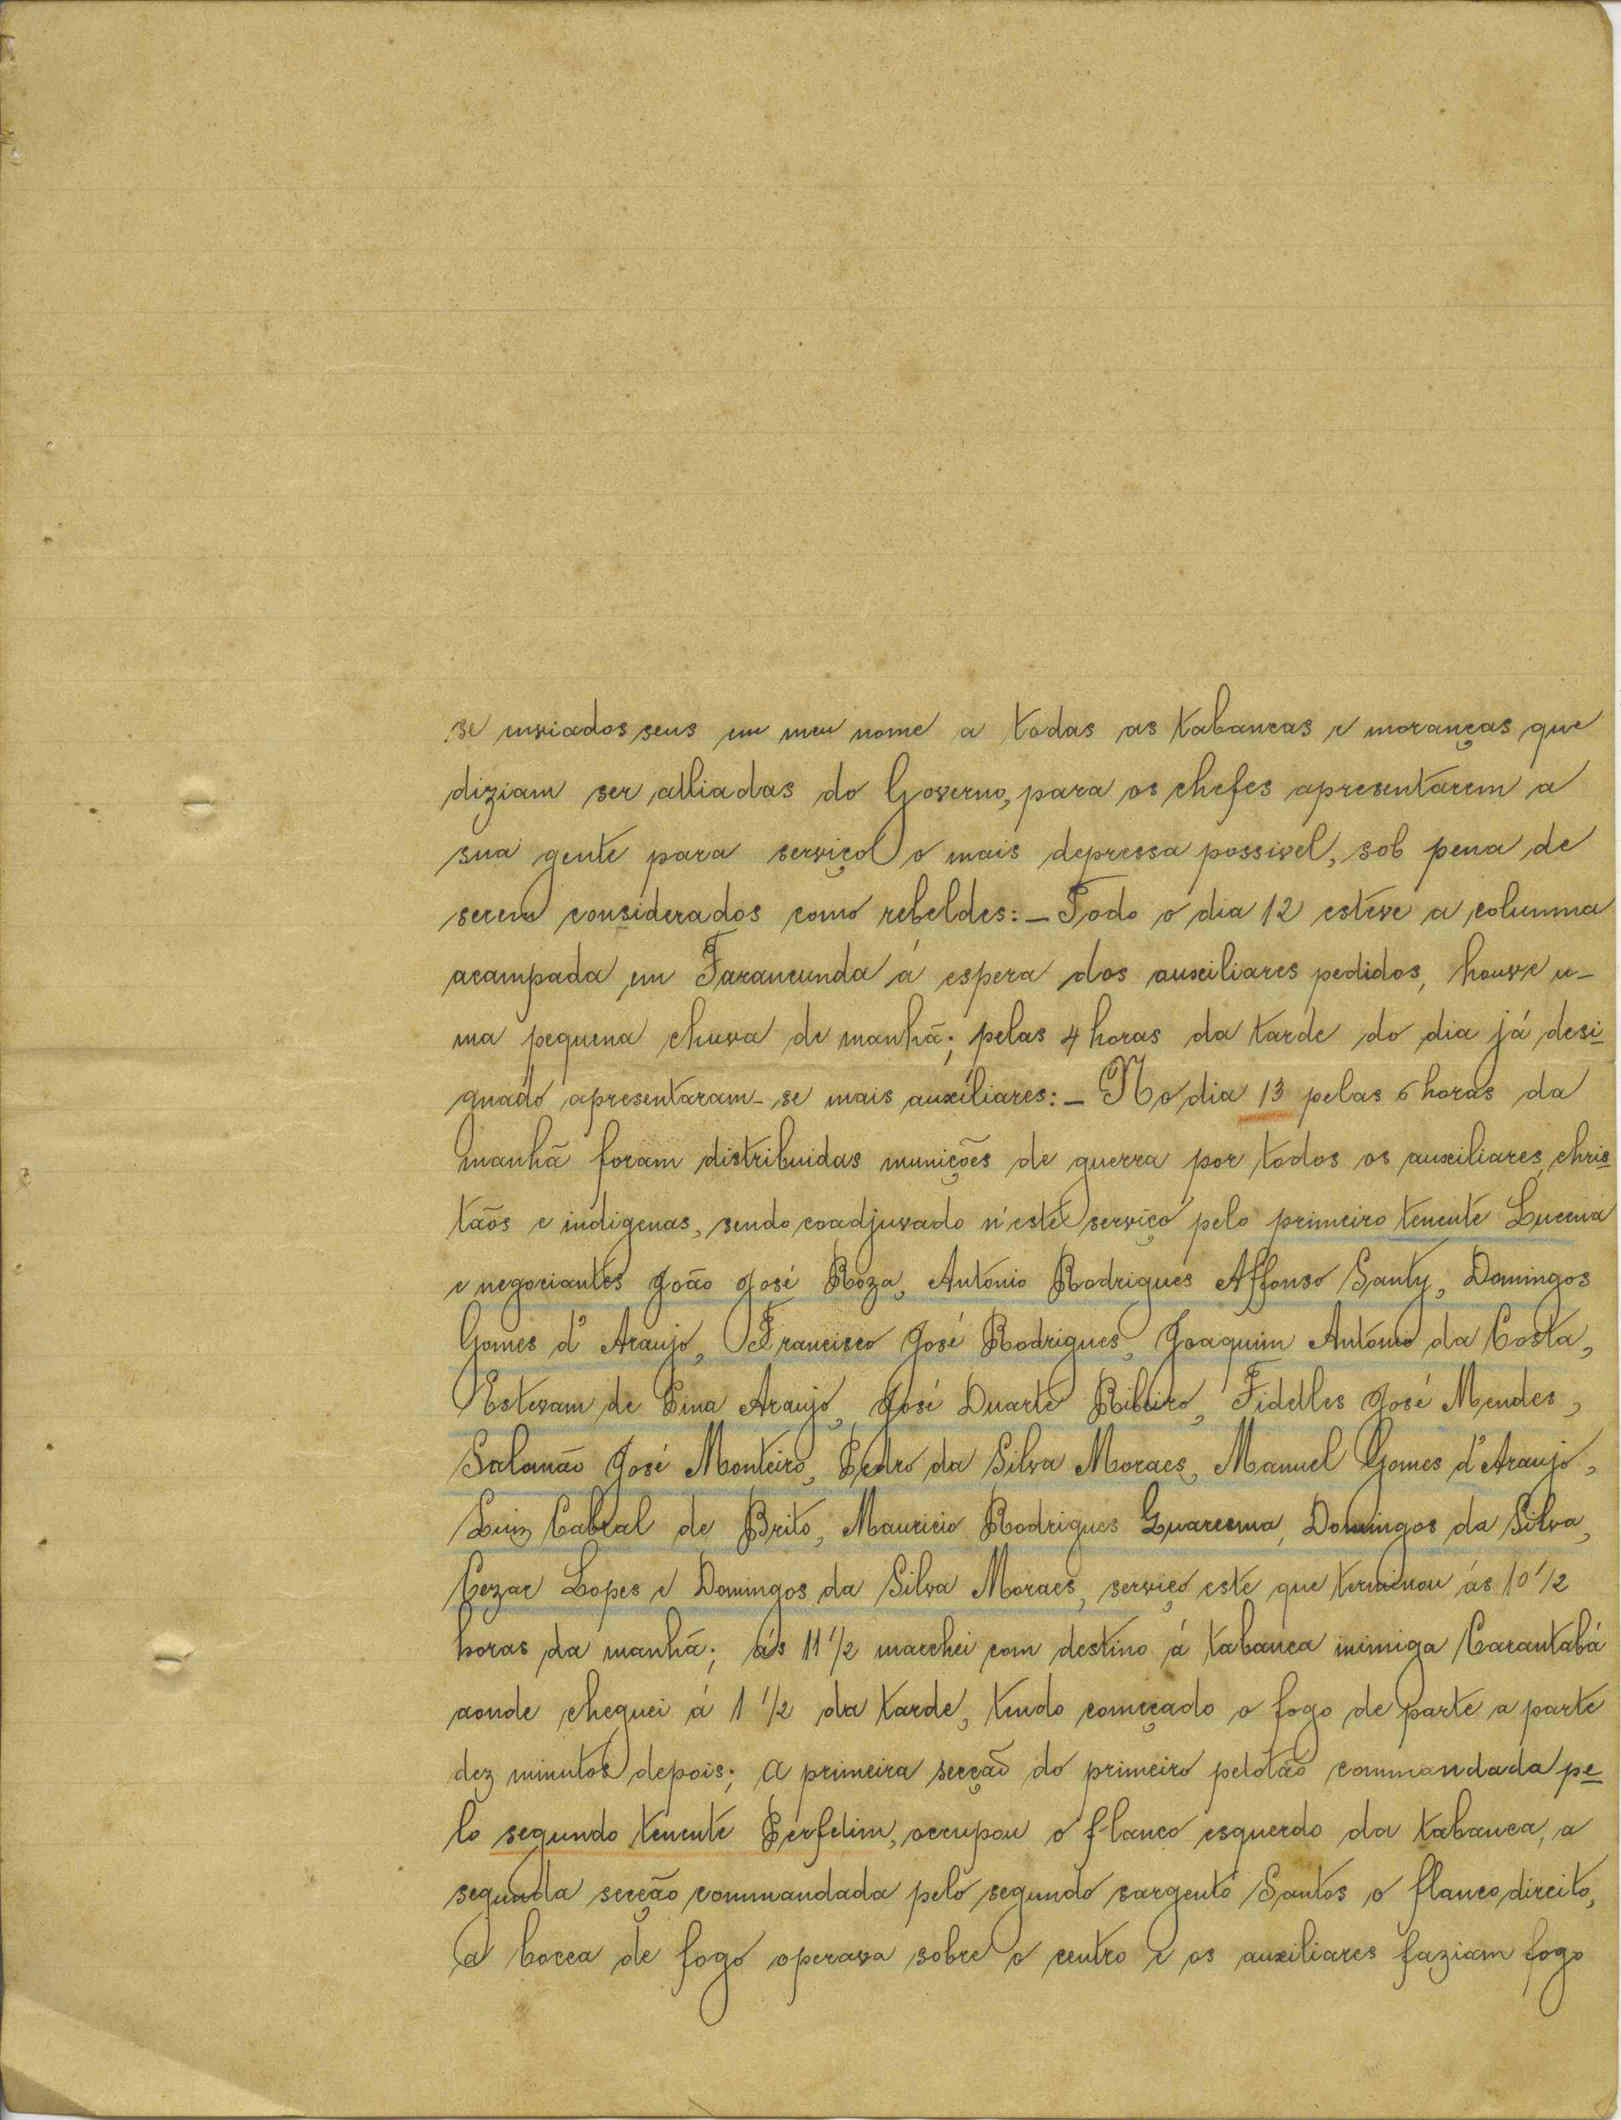 se enviados seus em meu nome a todas as tabancas e moranças que
diziam ser alliadas do Governo, para os chefes apresentarem a
sua gente para serviço o mais depressa possivel, sob pena de
serem considerados como rebeldes:_ Todo o dia 12 esteve a columna
acampada em Farancunda á espera dos auxiliares pedidos, houve u-
ma pequena chuva de manhã; pelas 4 horas da tarde do dia já desi-
gnado apresentaram-se mais auxiliares:_ No dia 13 pelas 6 horas da
manhã foram distribuidas munições de guerra por todos os auxiliares, chris-
tãos e indigenas, sendo coadjuvado n'este serviço pelo primeiro tenente Lucena
e negociantes João José Roza, Antonio Rodrigues Affonso Santy, Domingos
Gomes d'Araujo, Francisco José Rodrigues, Joaquim Antonio da Costa,
Estevam de Pina Araujo, José Duarte Ribeiro, Fidelles José Mendes,
Salamão José Monteiro, Pedro da Silva Moraes, Manuel Gomes d'Araujo,
Luiz Cabral de Brito, Mauricio Rodrigues Guaresma, Domingos da Silva,
Cezar Lopes e Domingos da Silva Moraes, serviço este que terminou ás 10 1/2
horas da manhã; ás 11 1/2 marchei com destino á tabanca inimiga Carantabá
aonde cheguei á 1 1/2 da tarde, tendo começado o fogo de parte a parte
dez minutos depois; a primeira secção do primeiro pelotão commandada pe-
lo segundo tenente Perfelim, occupou o flanco esquerdo da tabanca, a
segunda secção commandada pelo segundo sargento Santos o flanco direito,
a bocca de fogo operava sobre o centro e os auxiliares faziam fogo